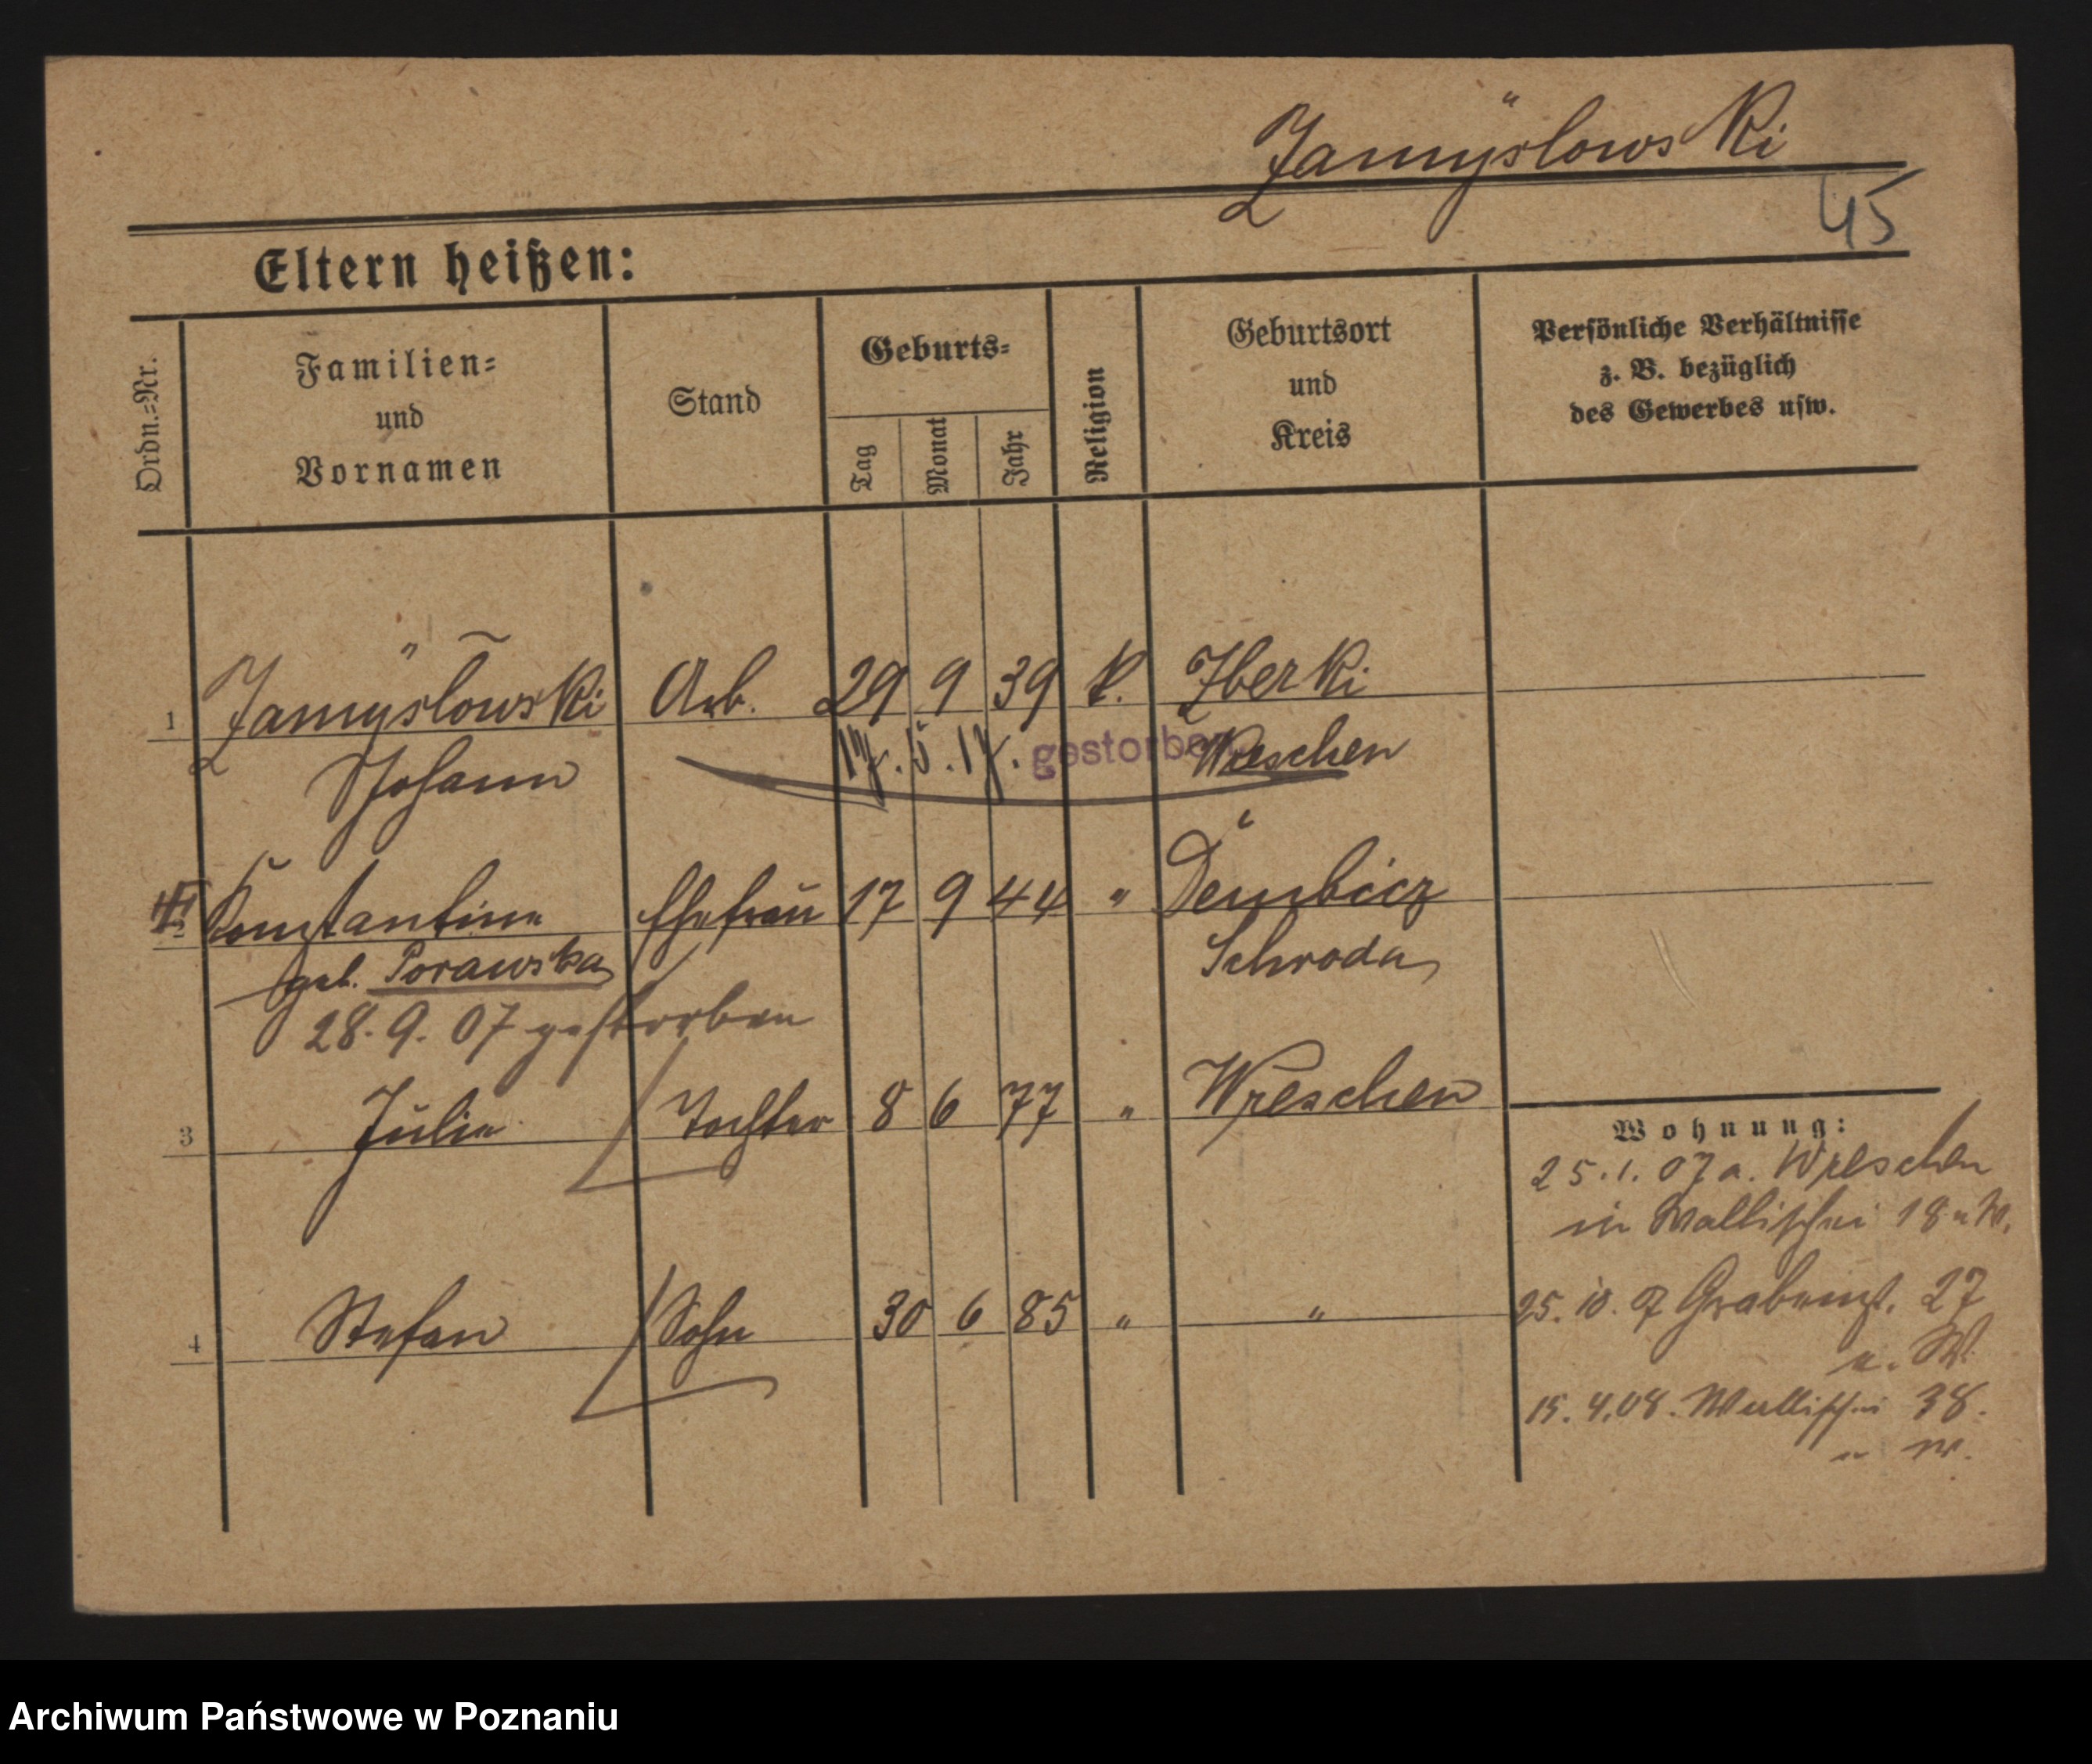 Zamÿslowski
45
Eltern heißen:
Ordn.=Nr.
Familien=
und
Vornamen
Stand
Geburts=
Tag
Monat
Jahr
Religion
Geburtsort
und
Kreis
Persönliche Verhältnisse
z. B. bezüglich
des Gewerbes usw.
1 Zamÿslowski Arb. 29 9 39 k. Zberki
Johann 17. 5. 17. gestorben Wreschen
2 Konstantine Ehefrau 17 9 44 " Dembicz
geb. Porawska Schroda
28. 9. 07 gestorben
3 Julie Tochter 8 6 77 " Wreschen
4 Stefan Sohn 30 6 85 " "
Wohnung:
25. 1. 07 a. Wreschen
in Wallischei 18 u W.
25. 10. 07 Grabenst. 27
u. W.
15. 4. 08. Wallischei 38.
u W.
Archiwum Państwowe w Poznaniu